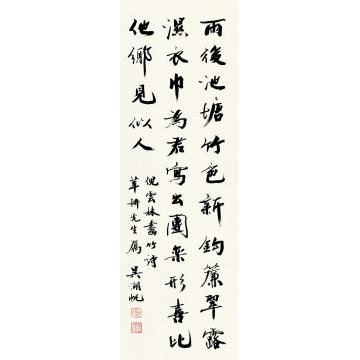 雨後池塘竹色新鈎簾翠露
濕衣巾為君寫出團欒形喜比
他鄉見似人
倪雲林畫竹詩
草珊先生屬 吳湖帆